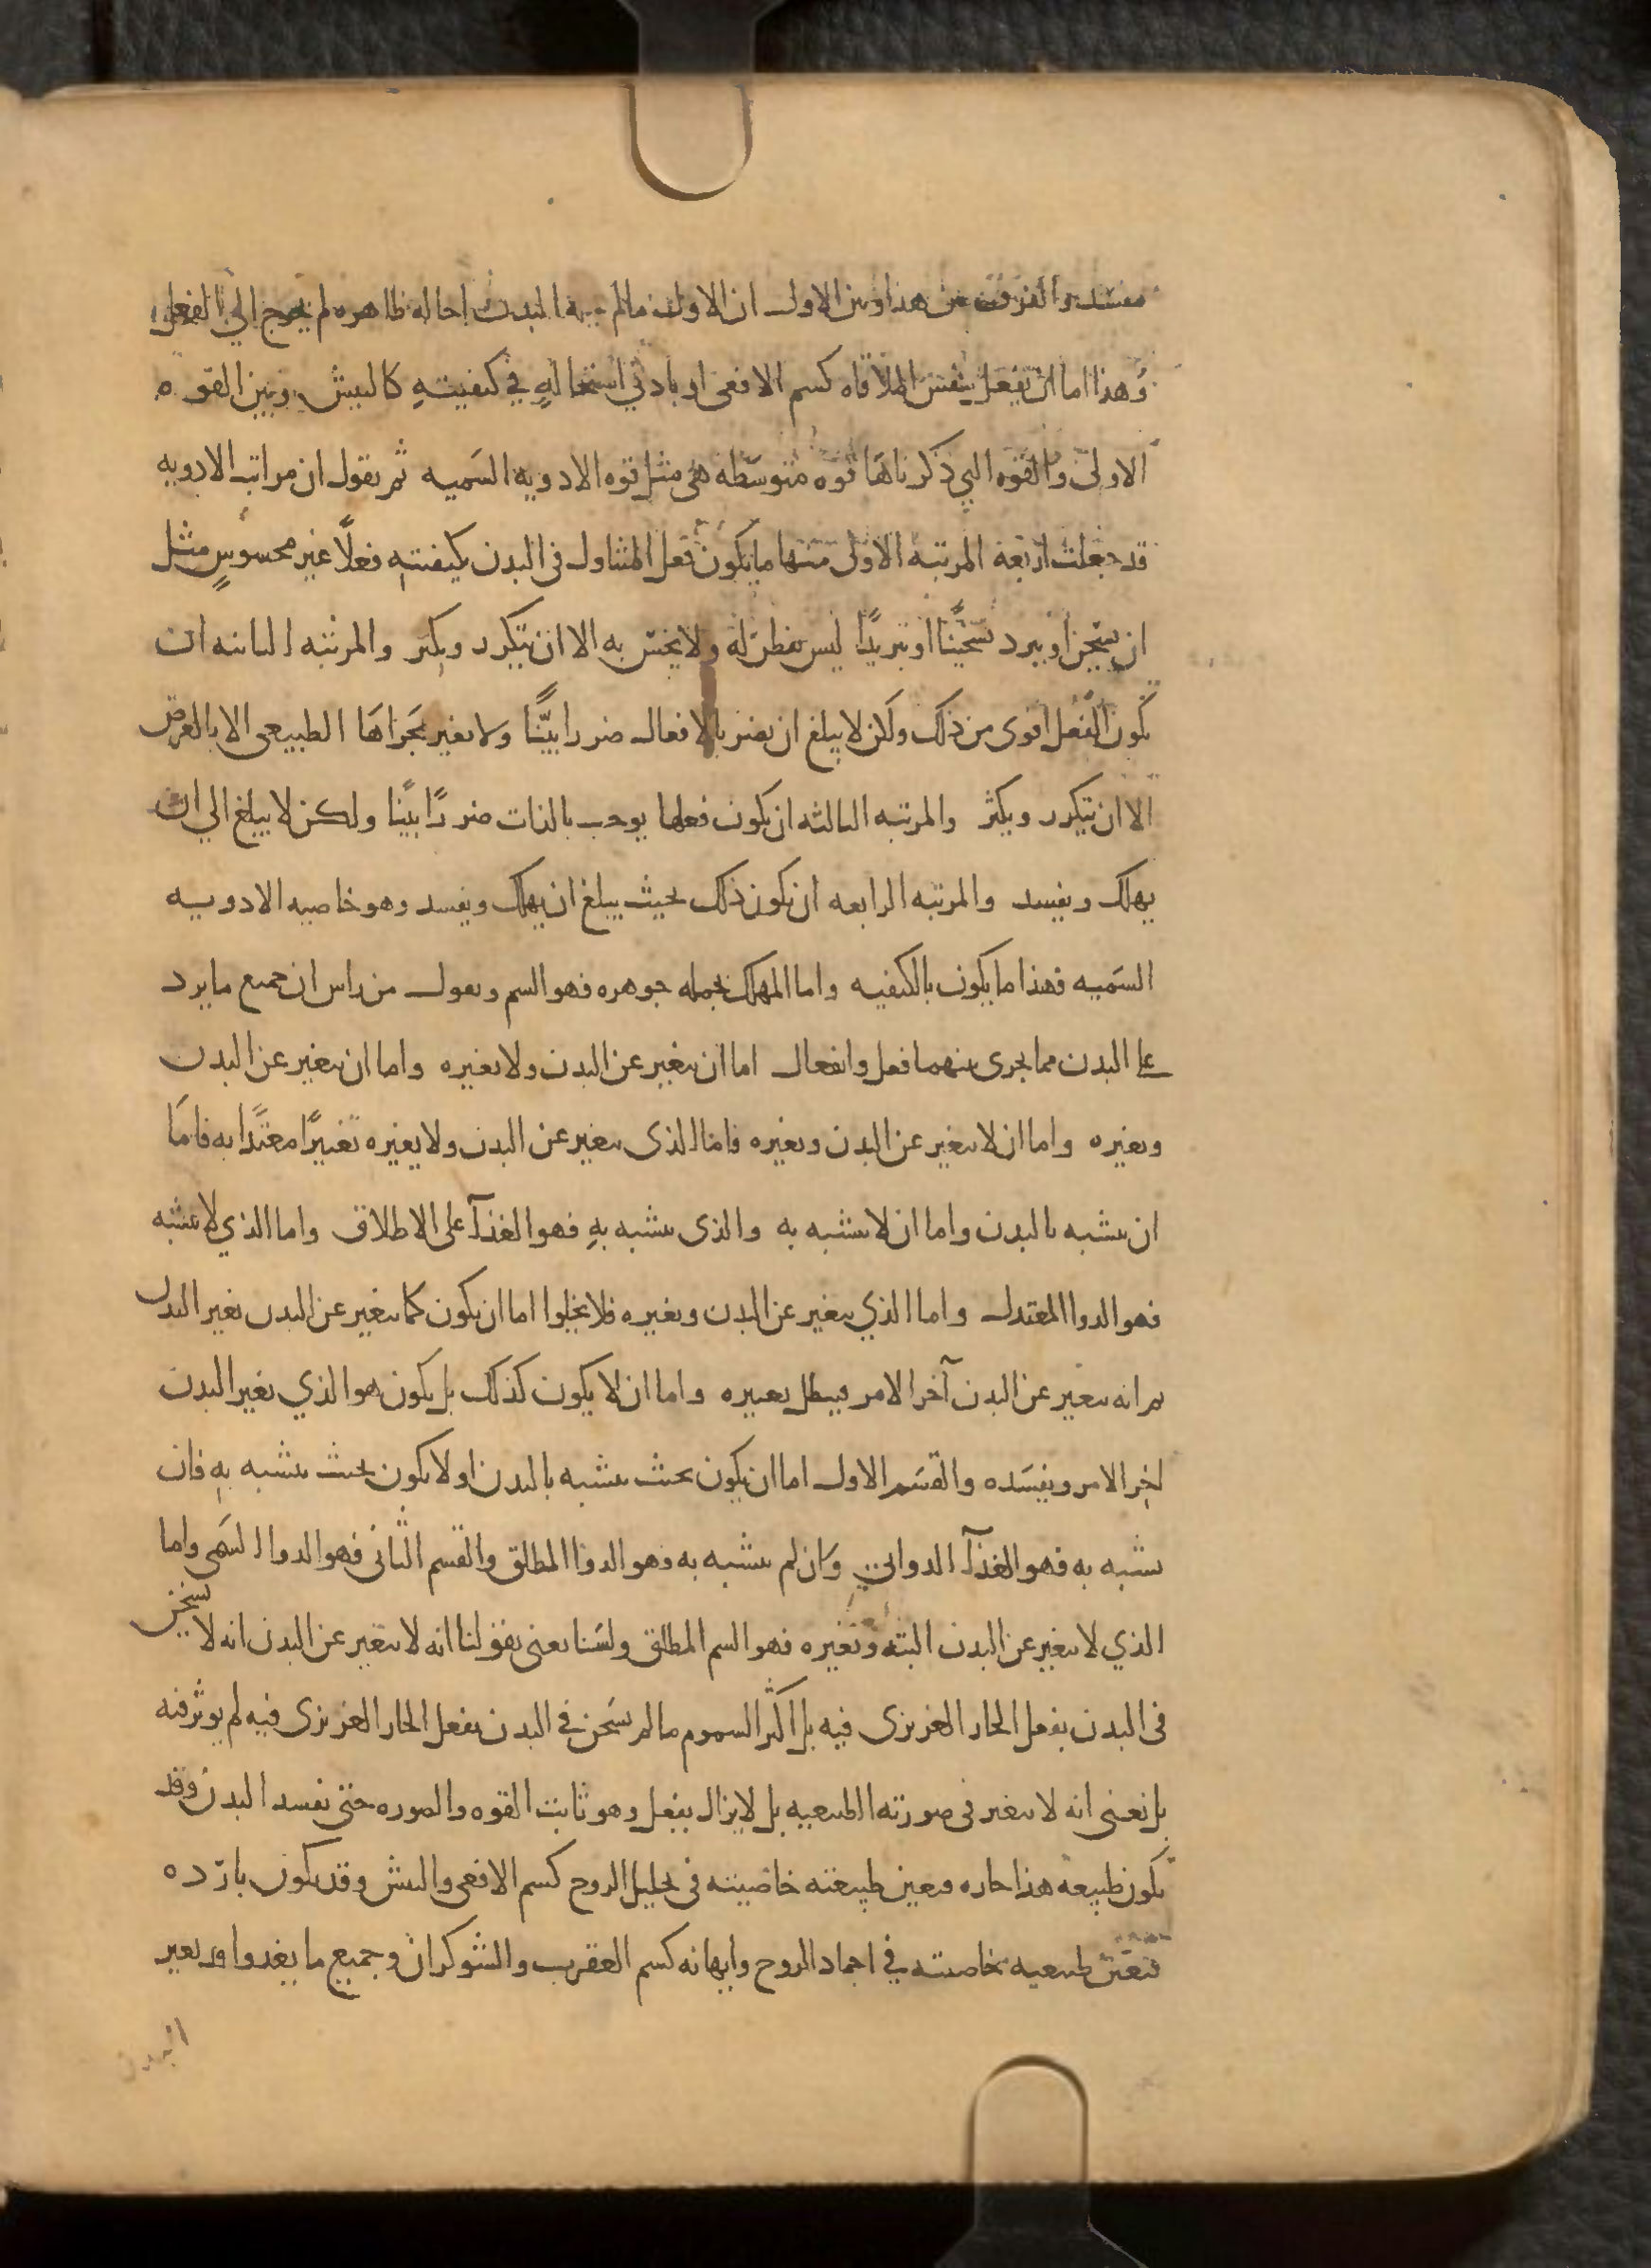 مفسد والفرق بين هذا وبين الاول ان الاول ما لم يحل البدن احاله ظاهره لم يخرج الي الفعل
وهذا اما ان يفعل بنفس الملاقاه كسم الافعى او بادني استحالهٍ في كيفيتهِ كالبيش وبين القوه
الاولى والقوه التي ذكرناها قوه متوسطه هي مثل قوه الادويه السميه ثم نقول ان مراتب الادويه
قد جعلت اربعة المرتبه الاولى منها ما يكون فعل المتناول في البدن بكيفيته فعلًا غير محسوسٍ مثل
ان يسخن او يبرد تسخينًا او تبريدًا ليس يفطن له ولا يحس به الا ان يتكرر ويكثر والمرتبه الثانيه ان
يكون الفعل اقوى من ذلك ولكن لا يبلغ ان يضر بالافعال ضررا بيّنًا ولا يغير مجراها الطبيعى الا بالعرض
الا ان يتكرر ويكثر والمرتبه الثالثه ان يكون فعلها يوجب بالذات ضررًا بينًا ولكن لا يبلغ الي ان
يهلك ويفسد والمرتبه الرابعه ان يكون ذلك بحيث يبلغ ان يهلك ويفسد وهو خاصيه الادويه
السميه فهذا ما يكون بالكيفيه واما المهلك بجمله جوهره فهو السم ونعول من راس ان جميع ما يرد
على البدن مما يجرى بينهما فعل وانفعال اما ان يتغير عن البدن ولا يغيره واما ان يتغير عن البدن
ويغيره واما ان لا يتغير عن البدن ويغيره فاما الذى يتغير عن البدن ولا يغيره تغيرًا معتدًا به فاما
ان يتشبه بالبدن واما ان لا يتشبه به والذى يتشبه بهِ فهو الغذآ على الاطلاق واما الذي لا يتشبه
فهو الدوا المعتدل واما الذي يتغير عن البدن ويغيره فلا يخلوا اما ان يكون كما يتغير عن البدن يغير البدن
ثم انه يتغير عن البدن آخر الامر فيبطل تغييره واما ان لا يكون كذلك بل يكون هو الذي يغير البدن
اخِر الامر ويفسده والقسم الاول اما ان يكون بحيث يتشبه بالبدن او لا يكون بحيث يتشبه بهِ فان
تشبه به فهو الغذآ الدوائي وان لم يتشبه به فهو الدوا المطلق والقسم الثانى فهو الدوا السمى واما
الذي لا يتغير عن البدن البته ويغيره فهو السم المطلق ولسنا نعنى بقولنا انه لا يتغير عن البدن انه لا يسخن
فى البدن بفعل الحار الغريزى فيه بل اكثر السموم ما لم يسخن في البدن بفعل الحار الغريزى فيه لم يوثر فيه
بل نعنى انه لا يتغير فى صورته الطبيعيه بل لا يزال يفعل وهو ثابت القوه والصوره حتى يفسد البدن وقد
يكون طبيعه هذا حاره فيعين طبيعته خاصيته فى تحليل الروح كسم الافعى والبيش وقد يكون بارده
فيعين طبيعيه خاصيته في اجماد الروح وايهانه كسم العقرب والشوكران وجميع ما يغذوا فقد يغير
البدن